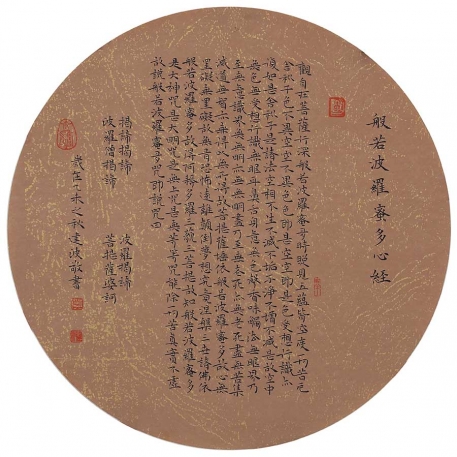 般若波羅蜜多心經
觀自在菩薩行深般若波羅蜜多時照見五蘊皆空度一切苦厄
舍利子色不異空空不異色色即是空空即是色受想行識亦
復如是舍利子是諸法空相不生不滅不垢不淨不增不減是故空中
無色無受想行識無眼耳鼻舌身意無色聲香味觸法無眼界乃
至無意識界無無明亦無無明盡乃至無老死亦無老死盡無苦集
滅道無智亦無得以無所得故菩提薩埵依般若波羅蜜多故心無
罣礙無罣礙故無有恐怖遠離顛倒夢想究竟涅槃三世諸佛依
般若波羅蜜多故得阿耨多羅三藐三菩提故知般若波羅蜜多
是大神咒是大明咒是無上咒是無等等咒能除一切苦真實不虛
故說般若波羅蜜多咒即說咒曰
揭諦揭諦 波羅揭諦
波羅僧揭諦 菩提薩婆訶
歲在乙未之秋建波敬書